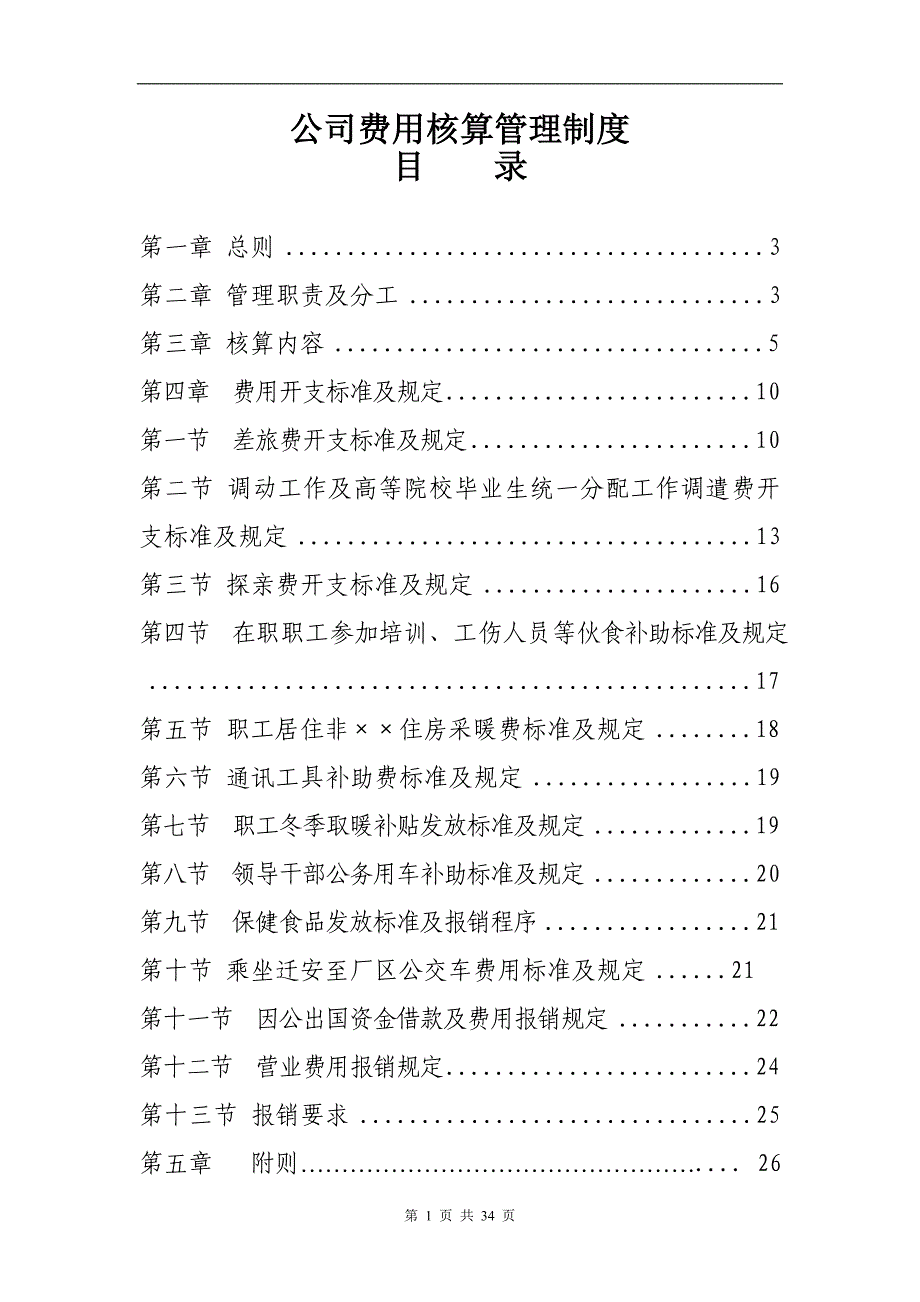 公司费用核算管理制度
目　　录
第一章 总则 .......................................3
第二章 管理职责及分工 .............................3
第三章 核算内容 ...................................5
第四章　费用开支标准及规定.........................10
第一节　差旅费开支标准及规定.......................10
第二节 调动工作及高等院校毕业生统一分配工作调遣费开
支标准及规定 .....................................13
第三节 探亲费开支标准及规定 ......................16
第四节　在职职工参加培训、工伤人员等伙食补助标准及规定
.................................................17
第五节 职工居住非××住房采暖费标准及规定 ........18
第六节 通讯工具补助费标准及规定 ..................19
第七节　职工冬季取暖补贴发放标准及规定 .............19
第八节　领导干部公务用车补助标准及规定 .............20
第九节　保健食品发放标准及报销程序 .................21
第十节 乘坐迁安至厂区公交车费用标准及规定 ......21
第十一节　因公出国资金借款及费用报销规定 ...........22
第十二节　营业费用报销规定.........................24
第十三节 报销要求 ................................25
第五章　 附则…………………………………………….... 26
第 1 页 共 34 页